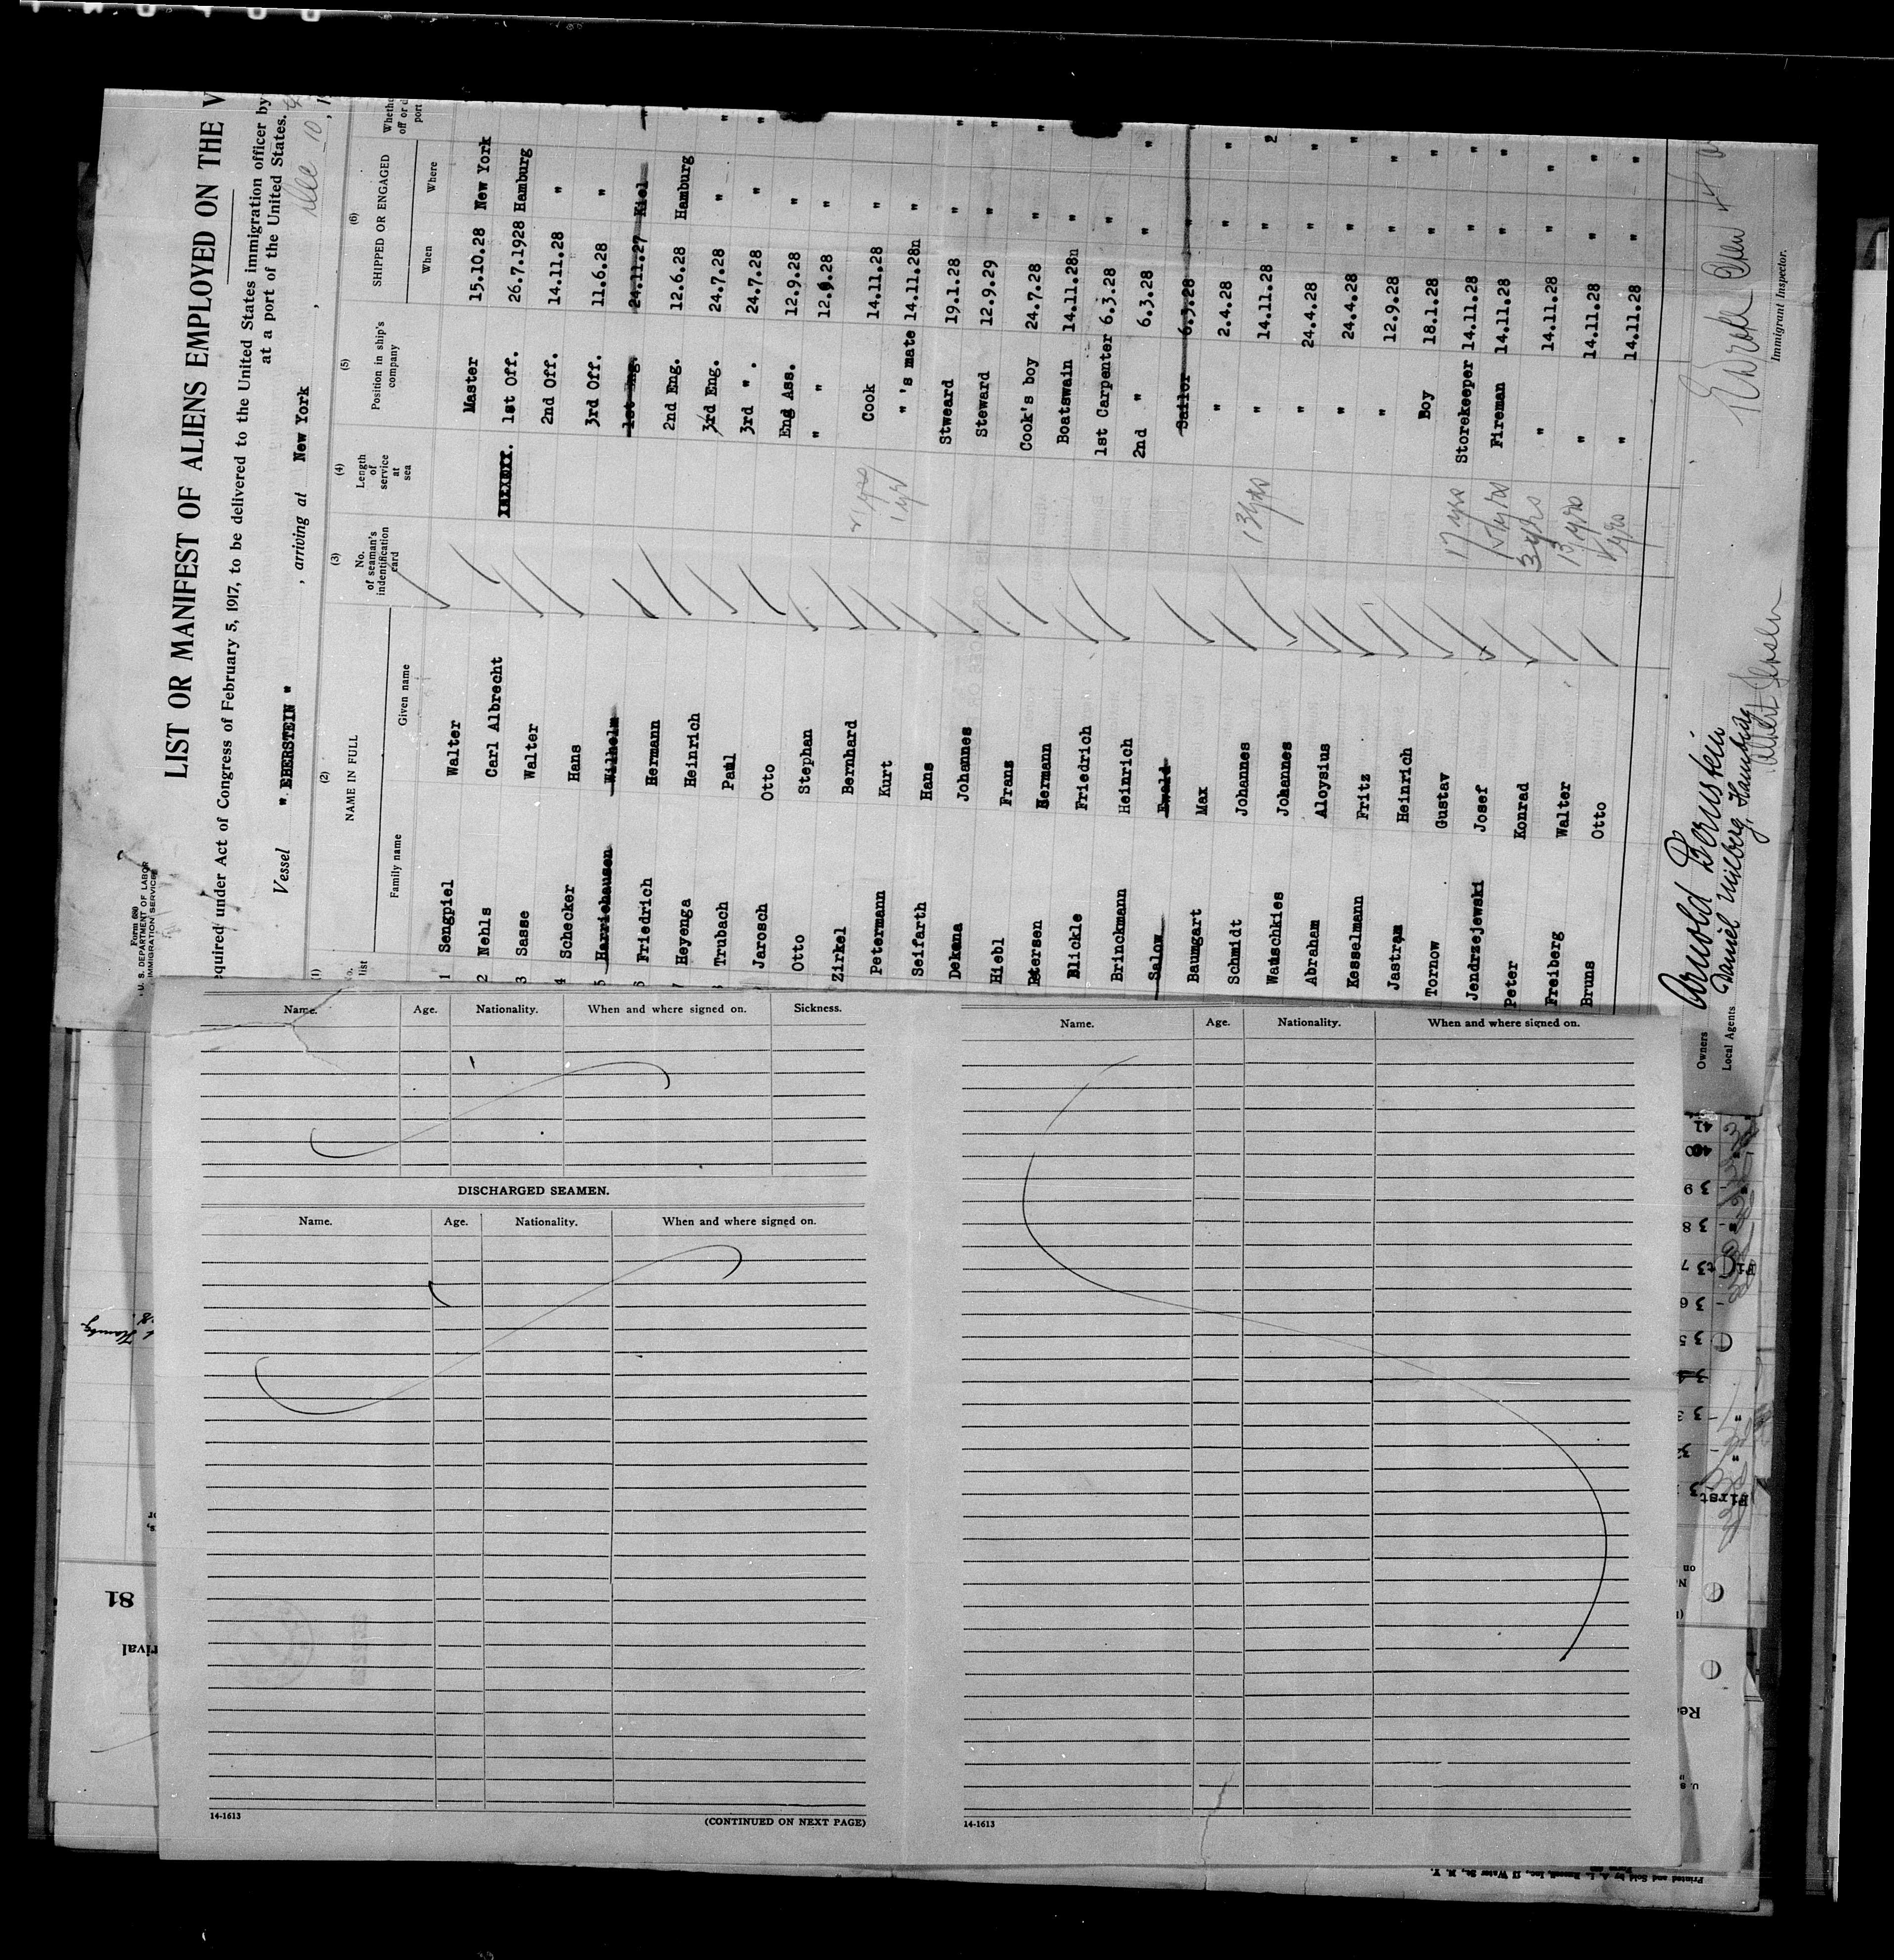 Form 680
U. S. DEPARTMENT OF LABOR
IMMIGRATION SERVICE
LIST OR MANIFEST OF ALIENS EMPLOYED ON THE V
equired under Act of Congress of February 5, 1917, to be delivered to the United States immigration officer by
at a port of the United States.
Vessel " EBERSTEIN " , arriving at New York , 10 , 1
(1) (2) (3) (4) (5) (6)
list NAME IN FULL No. of seaman's indentification card Length of service at sea Position in ship's company SHIPPED OR ENGAGED
Family name Given name When Where
1 Sengpiel Walter Master 15.10.28 New York
2 Nehls Carl Albrecht 1st Off. 26.7.1928 Hamburg
3 Sasse Walter 2nd Off. 14.11.28 "
4 Schecker Hans 3rd Off. 11.6.28 "
5 Harriehausen Wilhelm 1st Eng. 24.11.27 Kiel "
6 Friedrich Hermann 2nd Eng. 12.6.28 Hamburg
Heyenga Heinrich 3rd Eng. 24.7.28 " "
Trubach Paul 3rd " . 24.7.28 " "
Jarosch Otto Eng Ass. 12.9.28 "
Otto Stephan " " 12.9.28 "
Zirkel Bernhard Cook 14.11.28 "
Petermann Kurt " 's mate 14.11.28n "
Seifarth Hans Stweard 19.1.28 " "
Dekena Johannes Steward 12.9.29 " "
Hiebl Franz Cook's boy 24.7.28 " "
Petersen Hermann Boatswain 14.11.28n "
Blickle Friedrich 1st Carpenter 6.3.28 "
Brinckmann Heinrich 2nd " 6.3.28 " "
Salow Ewald Sailor 6.3.28 "
Baumgart Max " 2.4.28 " "
Schmidt Johannes " 14.11.28 "
Wanschkies Johannes 13 yrs " 24.4.28 " "
Abraham Aloysius " 24.4.28 " "
Kesselmann Fritz " 12.9.28 " "
Jastram Heinrich Boy 18.1.28 " "
Tornow Gustav 17 yrs Storekeeper 14.11.28 " "
Jendrzejewski Josef Fireman 14.11.28 " "
Peter Konrad 3 yrs " 14.11.28 " "
Freiberg Walter 13 yrs " 14.11.28 " "
Bruns Otto yrs " 14.11.28 " "
Owners Arnold Bernstein
Local Agents Daniel Milberg, Hamburg
Immigrant Inspector.
Name. Age. Nationality. When and where signed on. Sickness.
DISCHARGED SEAMEN.
Name. Age. Nationality. When and where signed on.
14-1613 (CONTINUED ON NEXT PAGE)
Name. Age. Nationality. When and where signed on.
14-1613
41
40
39
38
37
36
35
34
First
81
rival
Printed and Sold by A. L. Russell, Inc., 12 Water St., N. Y.